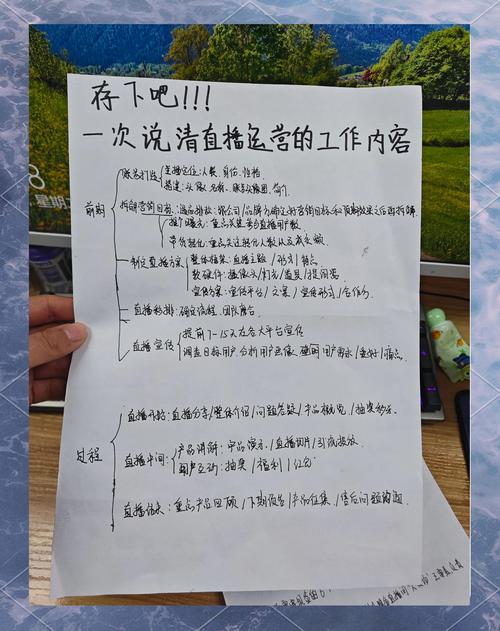 存下吧!!!
一次说清直播运营的工作内容
账号打造 主播定位:人设、身份、性格
搭建:头像、名称、账号头图、简介
前期
拆解营销目标:选品排款:跟公司/品牌方确定好营销目标和预期效果之后再拆解
推广曝光:重点关注平台直播用户数
带货转化:重点关注转化人数以及成交额
制定直播方案 整体框架:直播主题/形式/特点
软硬件:摄像头/灯光/道具/提词器
宣传方案:宣传平台/文案/宣传形式/合作方
直播彩排:确定流程、团队磨合
直播宣传 提前7-15天在各大平台宣传
调查目标用户,分析用户画像,用户需求/喜好/痛点
过程
直播开始:直播分享/整体介绍/问题答疑/产品概览/抽奖预告
直播中间 产品讲解:产品演示/直播切片/引流投放
用户互动:抽奖/福利/红包
直播结束:重点产品回顾/下期预告/产品征集/售后问题沟通
8
星期